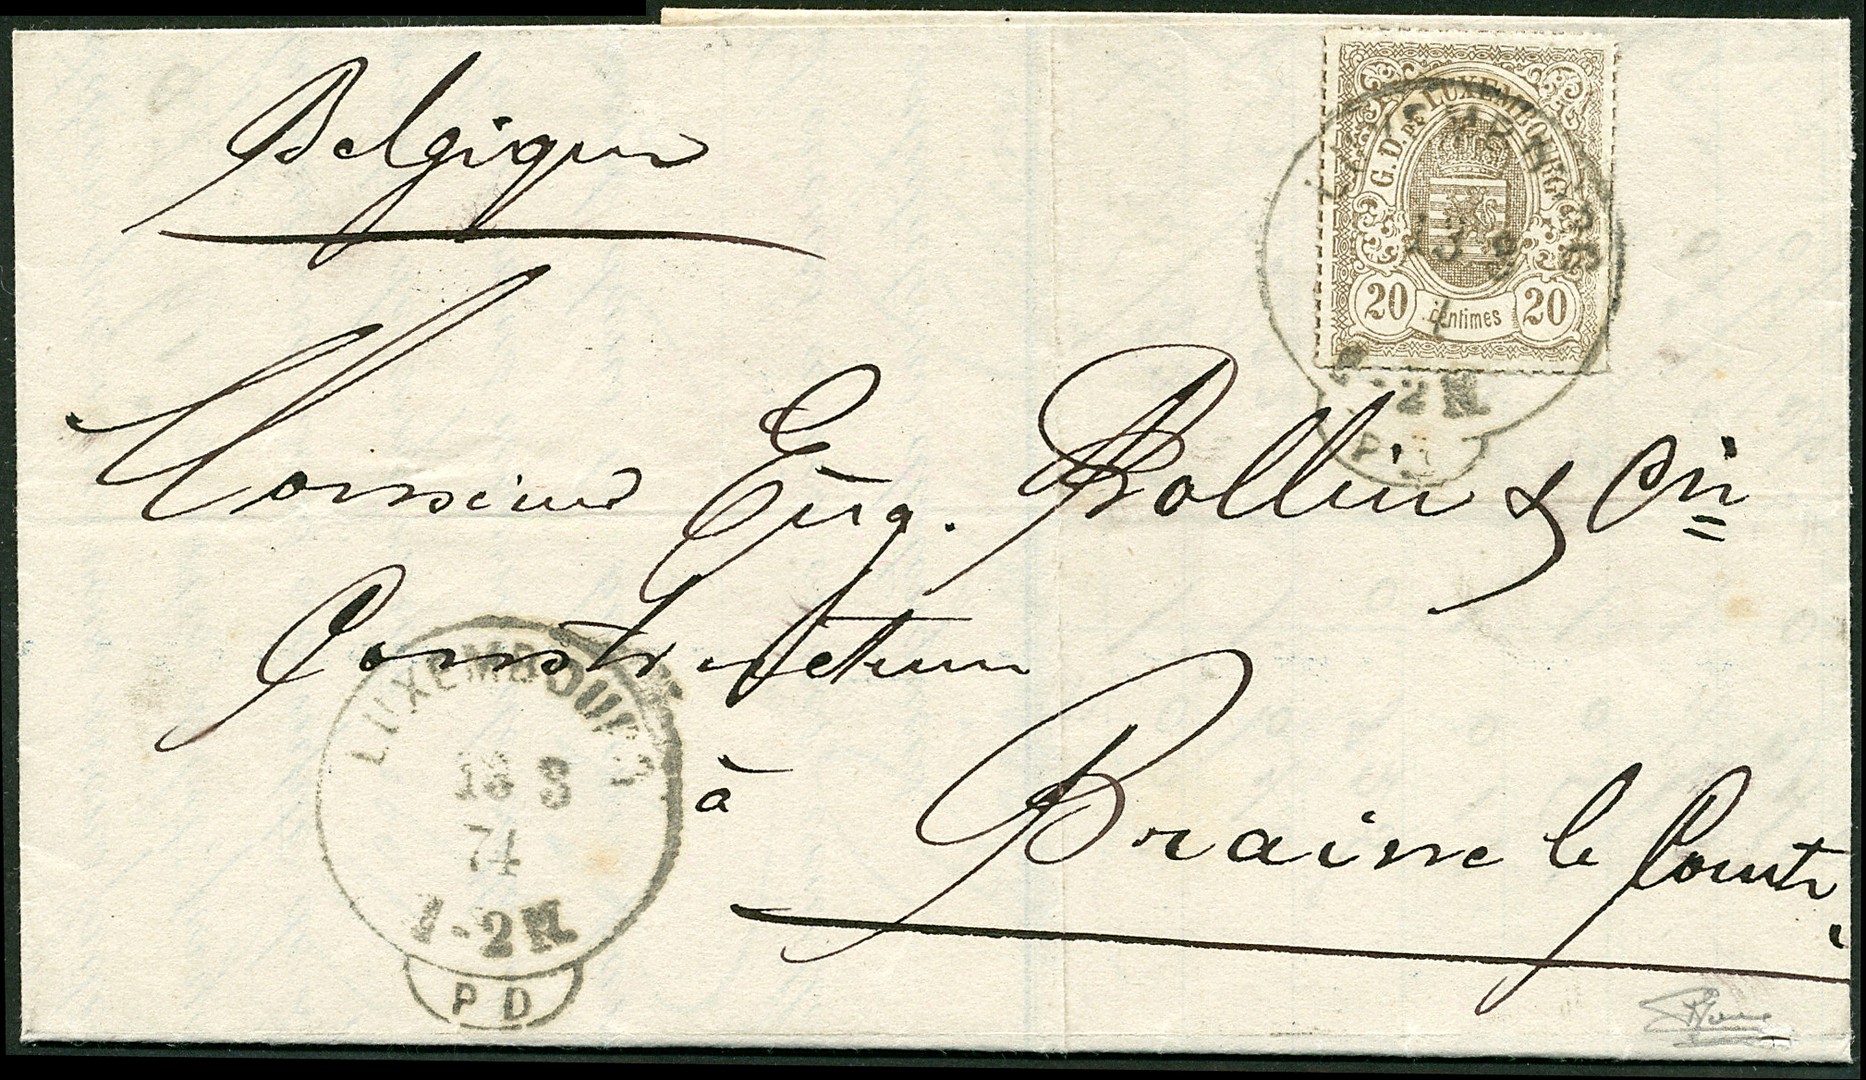 Belgique
G. D. DE LUXEMBOURG
20 centimes 20
Monsieur Eug. Rollin & Cie
Constructeur
à
Braine le Comte.
LUXEMBOURG
13 3
74
1-2N
P D